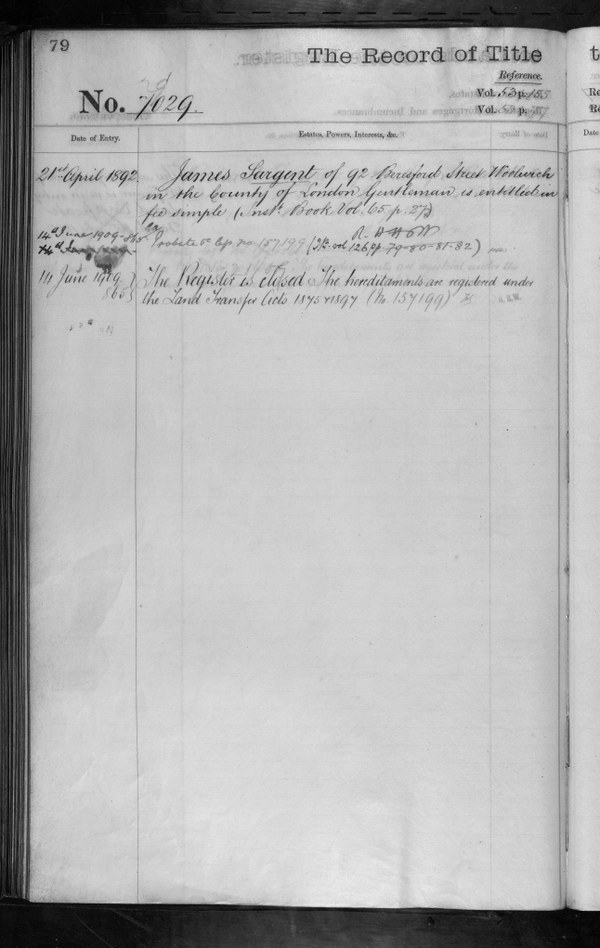 79
The Record of Title
Reference.
Vol. 53 p. 155
No. 7029.
Vol. p.
Date of Entry.
Estates, Powers, Interests, &c.
21st April 1892.
James Sargent of 92 Beresford Street Woolwich
in the County of London Gentleman is entitled in
fee simple (Inst. Book Vol. 65 p. 27)
14th June 1909
Probate no 157199 (Vol 126 p. 79-80-81-82)
14 June 1909
865
The Register is closed. The hereditaments are registered under
the Land Transfer Acts 1875 & 1897 (No. 157199)